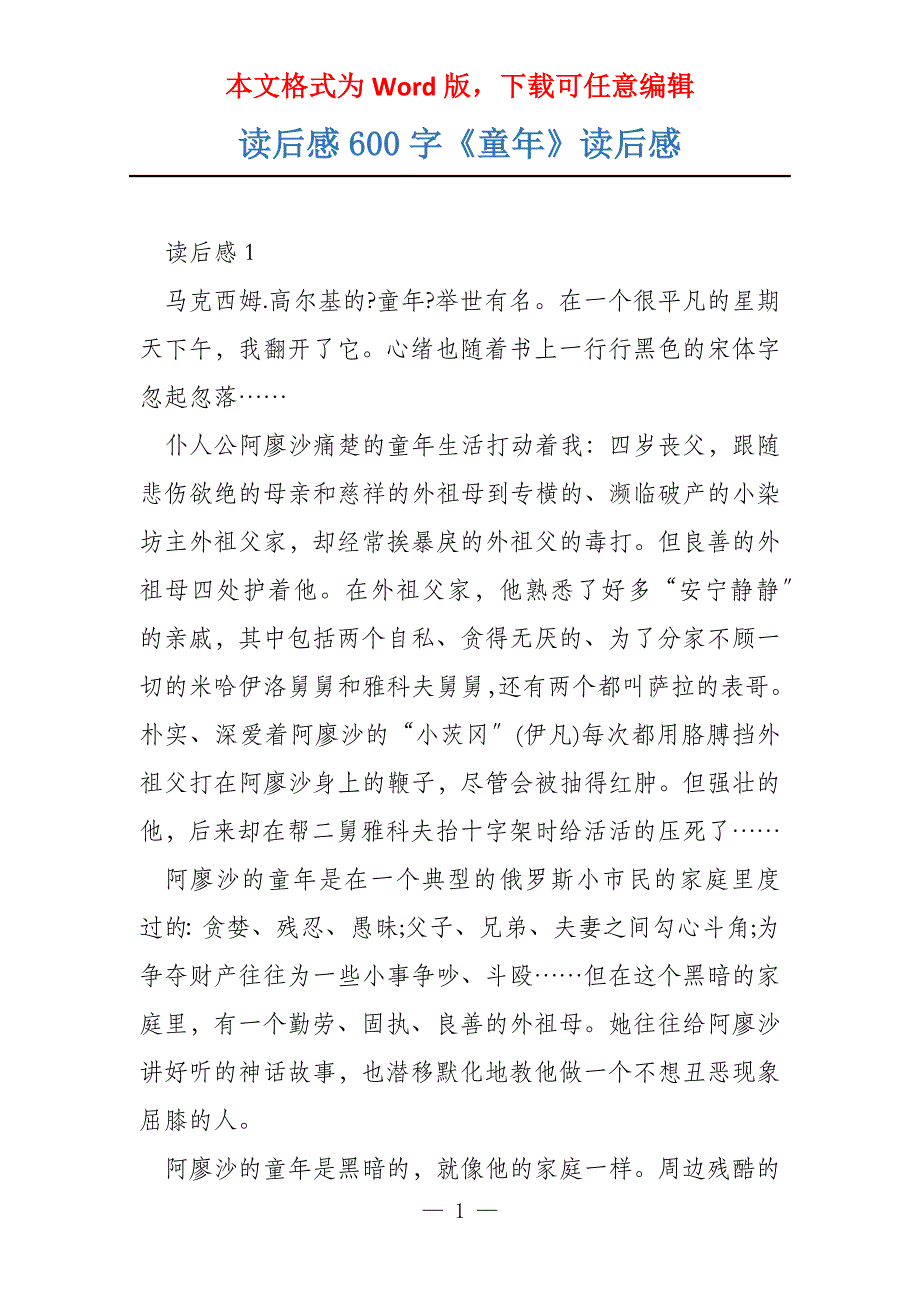 本文格式为 Word 版，下载可任意编辑
读后感 600 字《童年》读后感
读后感 1
马克西姆.高尔基的?童年?举世有名。在一个很平凡的星期
天下午，我翻开了它。心绪也随着书上一行行黑色的宋体字
忽起忽落……
仆人公阿廖沙痛楚的童年生活打动着我：四岁丧父，跟随
悲伤欲绝的母亲和慈祥的外祖母到专横的、濒临破产的小染
坊主外祖父家，却经常挨暴戾的外祖父的毒打。但良善的外
祖母四处护着他。在外祖父家，他熟悉了好多“安宁静静〞
的亲戚，其中包括两个自私、贪得无厌的、为了分家不顾一
切的米哈伊洛舅舅和雅科夫舅舅,还有两个都叫萨拉的表哥。
朴实、深爱着阿廖沙的“小茨冈〞(伊凡)每次都用胳膊挡外
祖父打在阿廖沙身上的鞭子，尽管会被抽得红肿。但强壮的
他，后来却在帮二舅雅科夫抬十字架时给活活的压死了……
阿廖沙的童年是在一个典型的俄罗斯小市民的家庭里度
过的: 贪婪、残忍、愚昧;父子、兄弟、夫妻之间勾心斗角;为
争夺财产往往为一些小事争吵、斗殴……但在这个黑暗的家
庭里，有一个勤劳、固执、良善的外祖母。她往往给阿廖沙
讲好听的神话故事，也潜移默化地教他做一个不想丑恶现象
屈膝的人。
阿廖沙的童年是黑暗的，就像他的家庭一样。周边残酷的
— 1 —